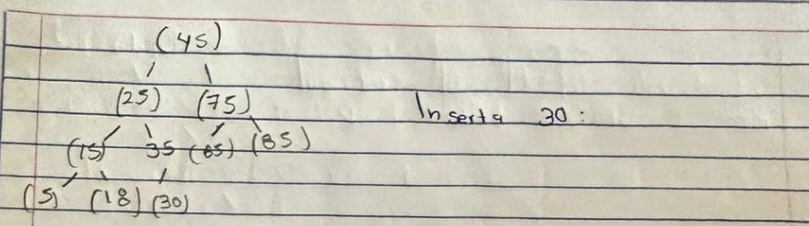 (45)
(25) (75)
Inserta 30:
(15) 35 (65) (85)
(5) (18) (30)